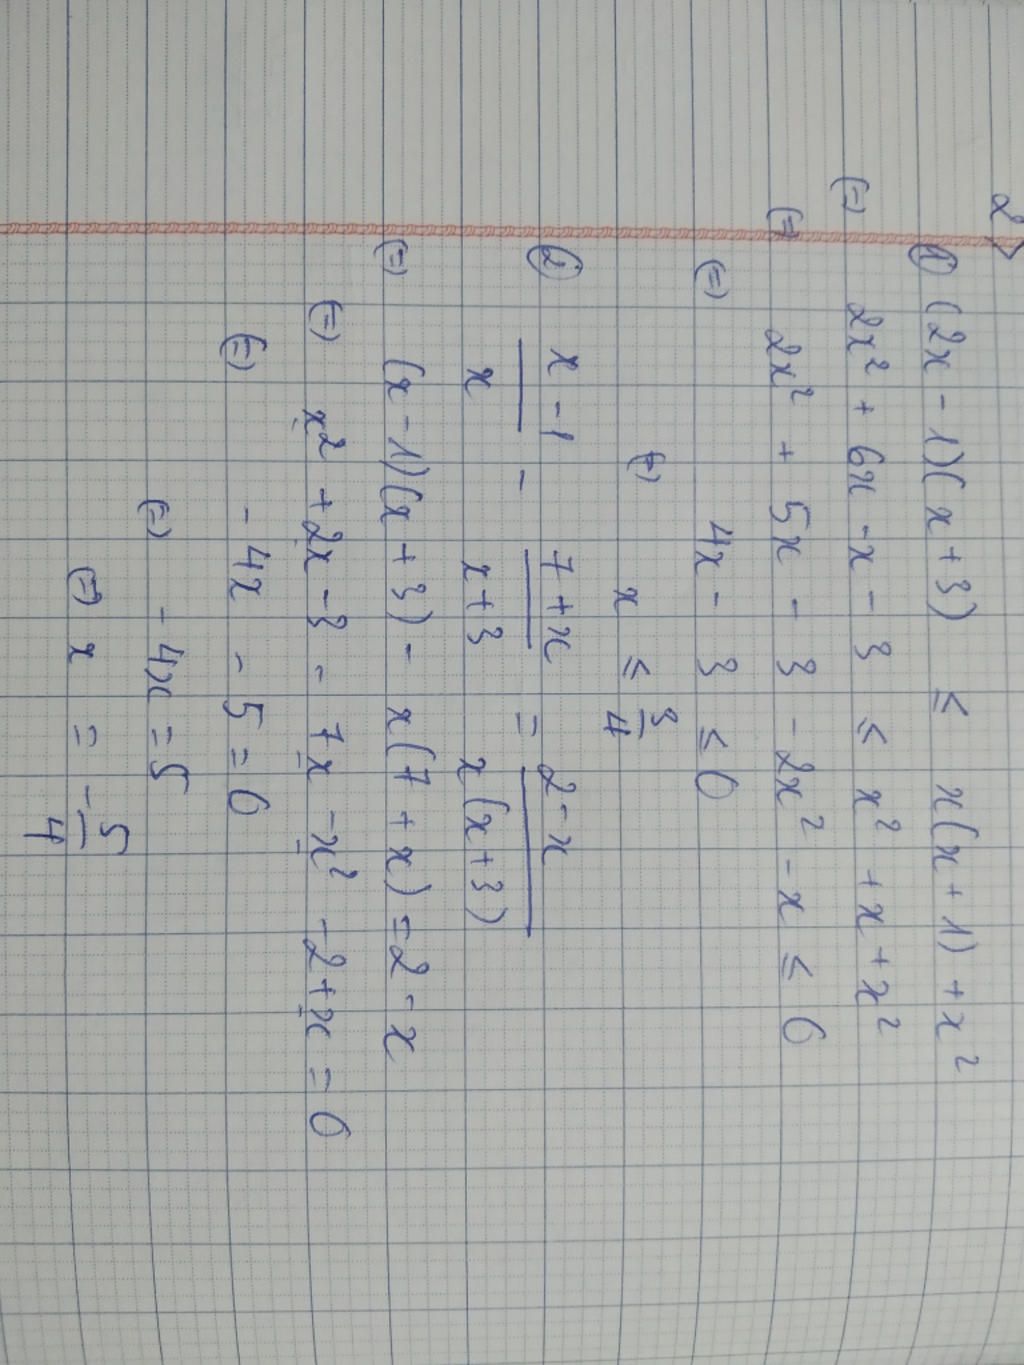 2)
① (2x - 1)(x + 3) ≤ x(x + 1) + x²
(=) 2x² + 6x - x - 3 ≤ x² + x + x²
(=) 2x² + 5x - 3 - 2x² - x ≤ 0
(=) 4x - 3 ≤ 0
(=) x ≤ 3/4
② (x - 1)/x - (7 + x)/(x + 3) = (2 - x)/(x(x + 3))
(=) (x - 1)(x + 3) - x(7 + x) = 2 - x
(=) x² + 2x - 3 - 7x - x² - 2 + x = 0
(=) - 4x - 5 = 0
(=) - 4x = 5
(=) x = - 5/4